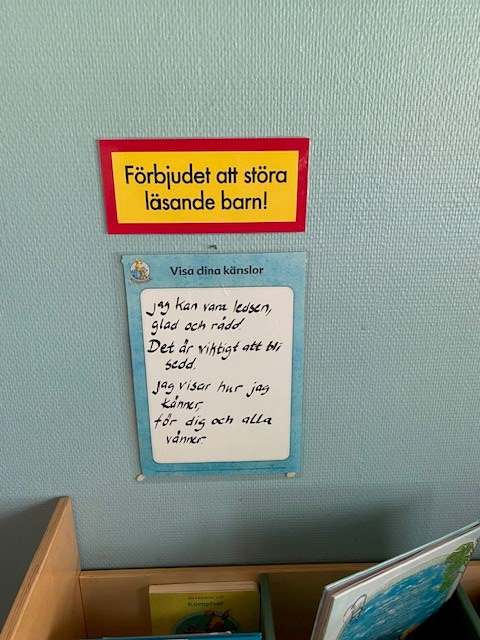 Förbjudet att störa
läsande barn!
Visa dina känslor
jag kan vara ledsen,
glad och rädd.
Det är viktigt att bli
sedd.
jag visar hur jag
känner,
för dig och alla
vänner.
Kompisar